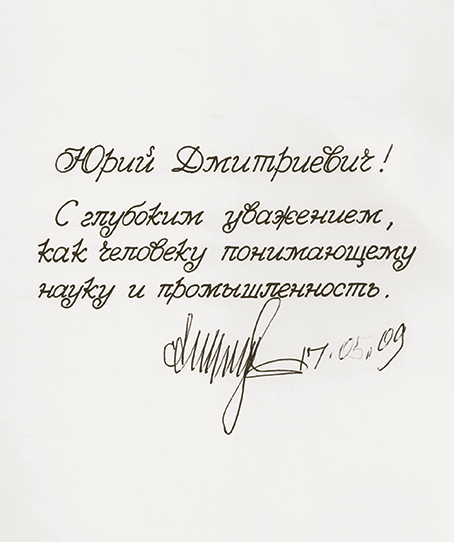 Юрий Дмитриевич!
С глубоким уважением,
как человеку понимающему
науку и промышленность.
17.05.09